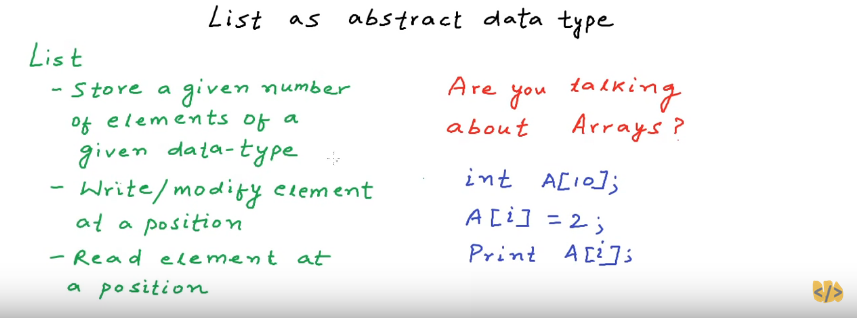 List as abstract data type
List
- Store a given number
of elements of a
given data-type
- Write/modify element
at a position
- Read element at
a position
Are you talking
about Arrays?
int A[10];
A[i] = 2;
Print A[i];
</>